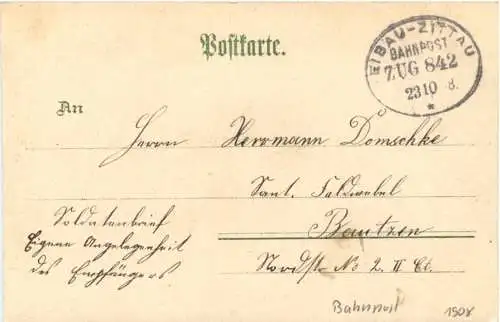 Postkarte.
EIBAU-ZITTAU
BAHNPOST
ZUG 842
23 10 8.
*
An
Herrn Herrmann Domschke
Sant. Feldwebel
Bautzen
Nordst. No 2. II Et.
Soldatenbrief
Eigene Angelegenheit
des Empfängers
Bahnpost
1908